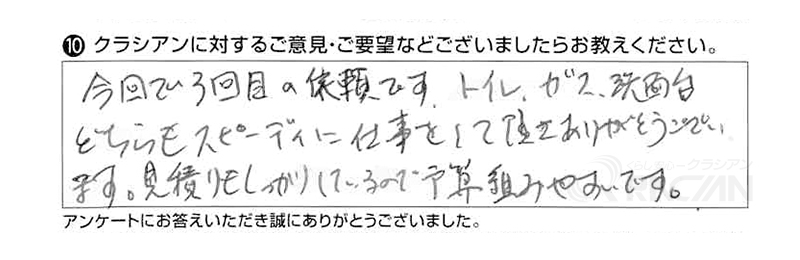 ⑩ クラシアンに対するご意見・ご要望などございましたらお教えください。
今回で3回目の依頼です。トイレ、ガス、洗面台
どちらもスピーディに仕事をして頂きありがとうござい
ます。見積りもしっかりしているので予算組みやすいです。
くらしあんしんクラシアン
QRACIAN
アンケートにお答えいただき誠にありがとうございました。